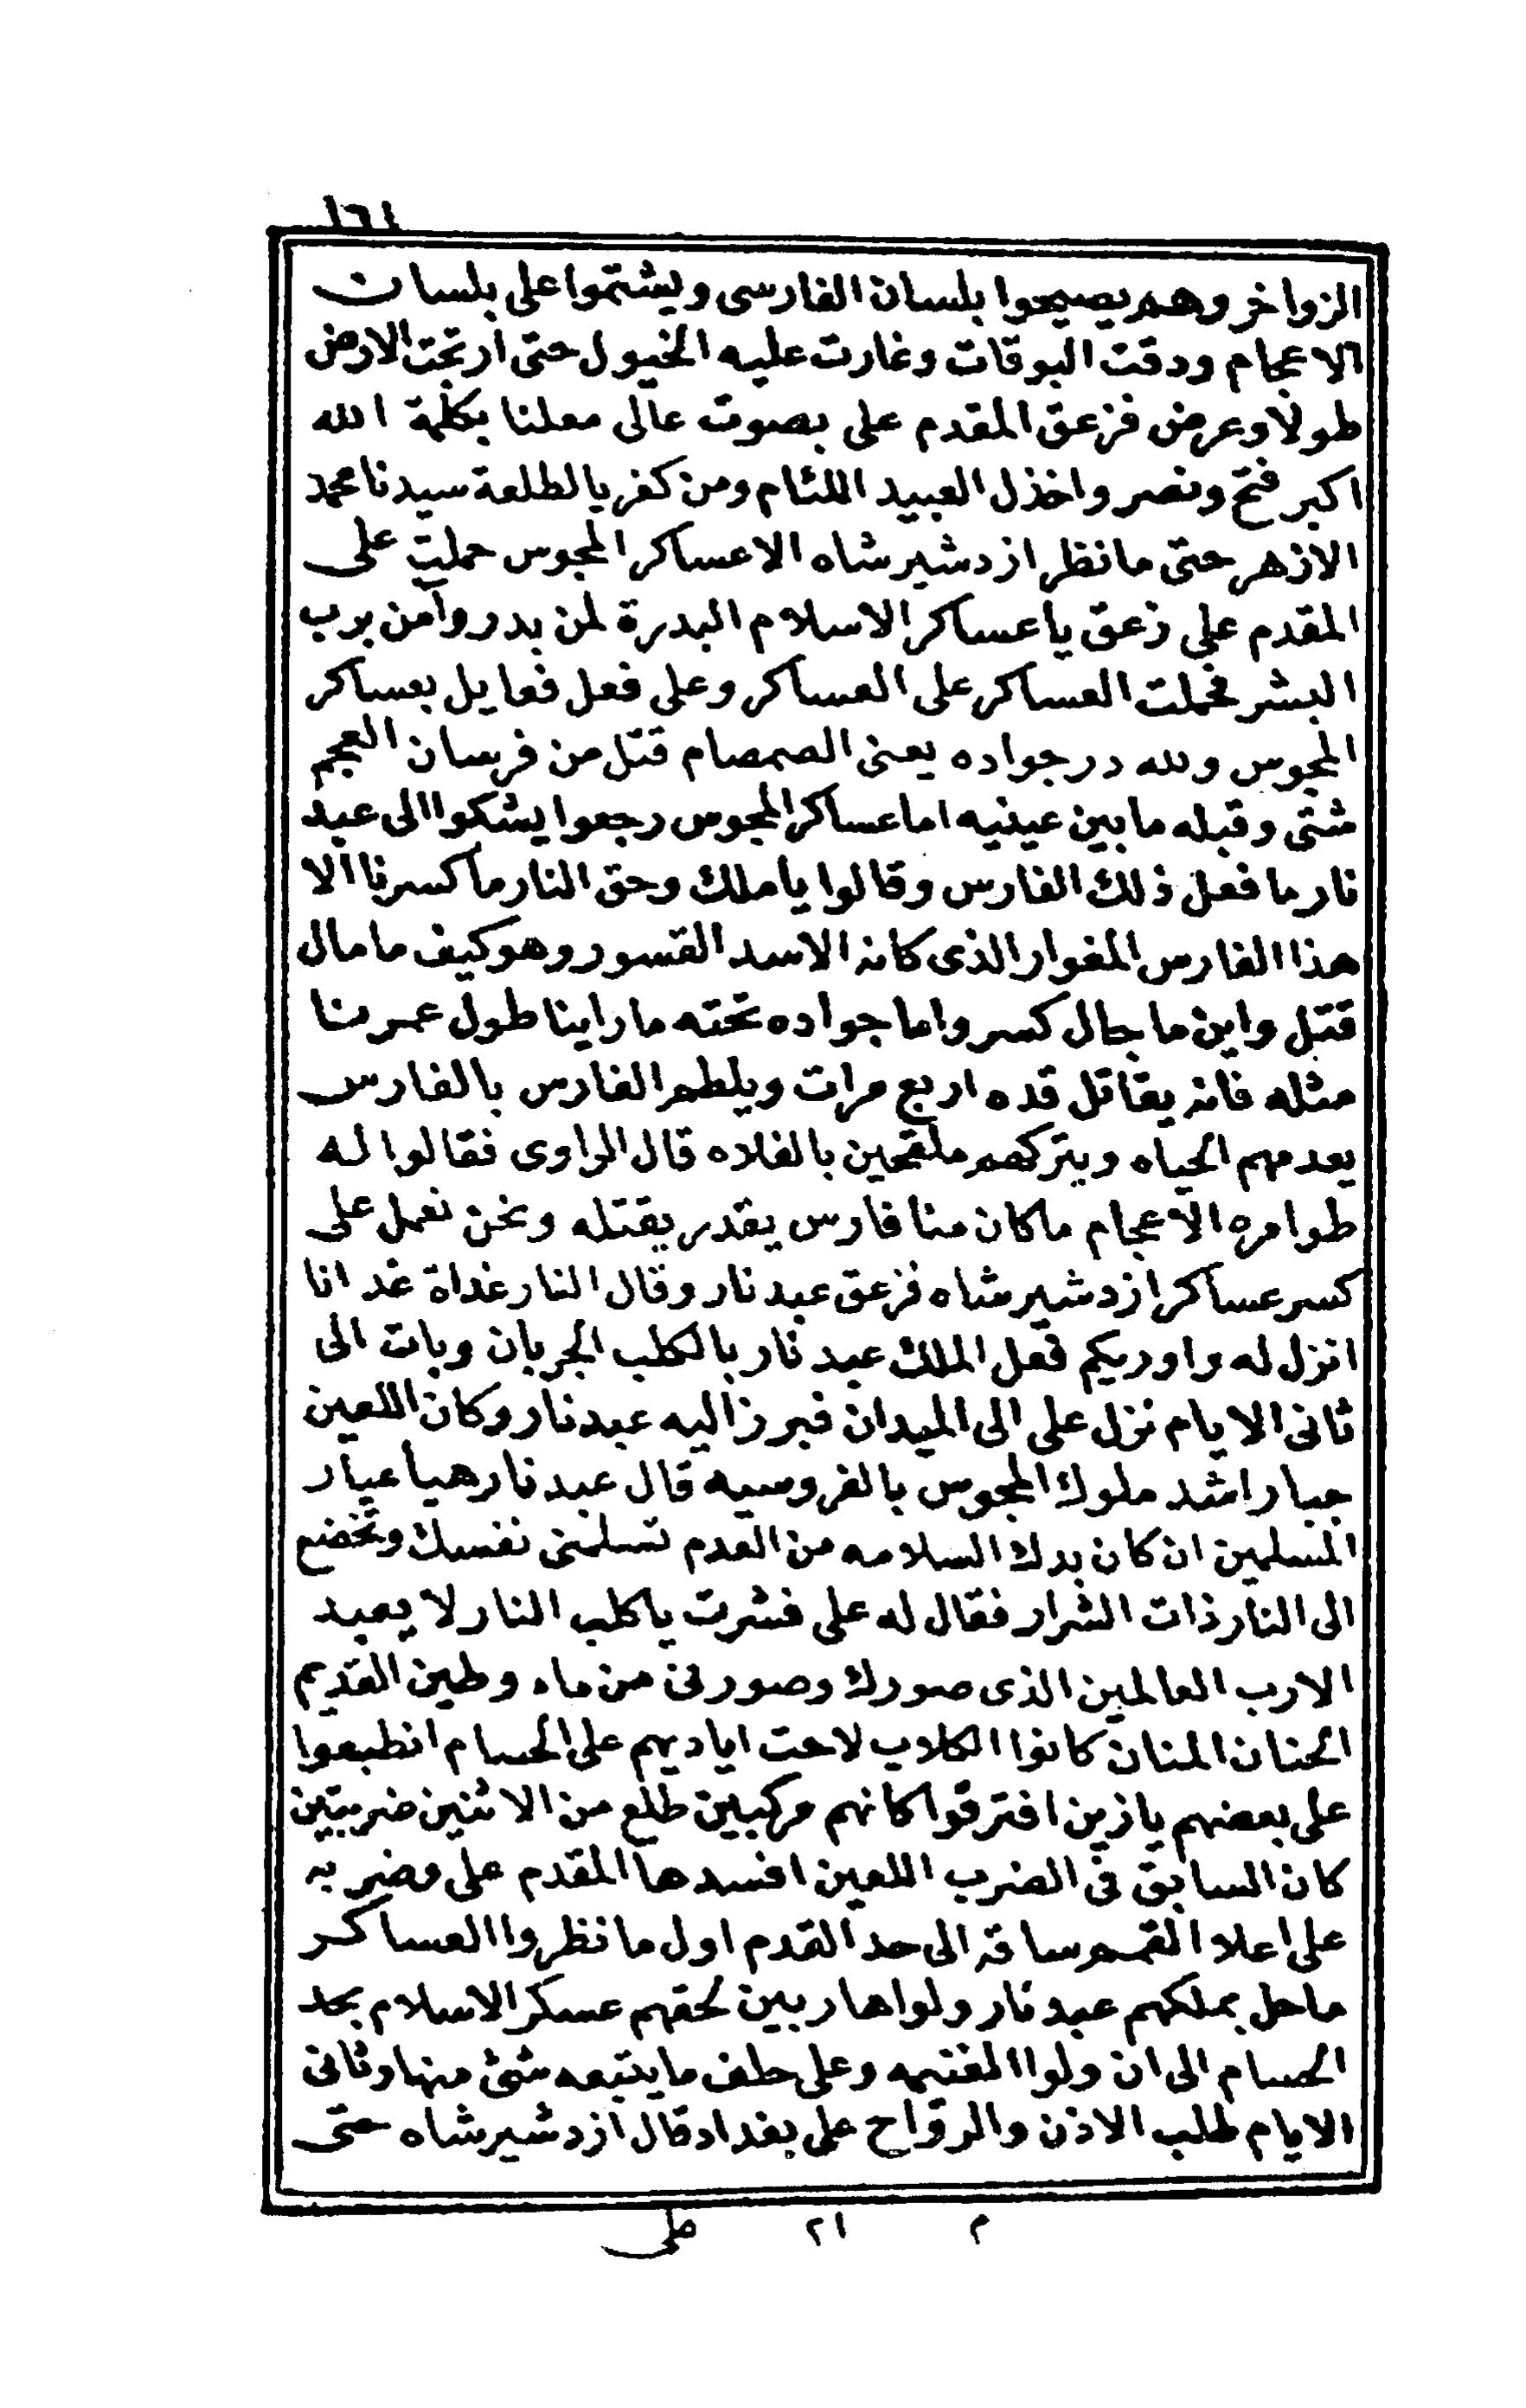 ١٦١
الزواخر وهم يصيحوا بلسان الفارسى ويشتموا على بلسان
الاعجام ودقت البوقات وغارت عليه الخيول حتى ارتجت الارض
طولا وعرض فزعق المقدم على بصوت عالى معلنا بكلمة الله
اكبر فتح ونصر واخذل العبيد اللئام ومن كفر بالطلعة سيدنا محمد
الازهر حتى ما نظر ازدشير شاه الا عساكر المجوس حملت على
المقدم على زعق يا عساكر الاسلام البدرة لمن بدر وآمن برب
البشر فحملت العساكر على العساكر وعلى فعل فعايل بعساكر
المجوس ولله در جواده يعنى الصمصام قتل من فرسان العجم
شتى وقبله ما بين عينيه اما عساكر المجوس رجعوا يشكوا الى عبد
نار ما فعل ذلك الفارس وقالوا يا ملك وحق النار ما كسرنا الا
هذا الفارس المغوار الذى كانه الاسد القسور وهو كيف ما مال
قتل واين ما جال كسر واما جواده تحته ما راينا طول عمرنا
مثله فانه يقاتل قده اربع مرات ويلطم الفارس بالفارس
يعدمهم الحياه ويتركهم ملقحين بالفلاه قال الراوى فقالوا له
طوامره الاعجام ما كان منا فارس يقدر يقتله ونحن نعمل على
كسر عساكر ازدشير شاه فزعق عبد نار وقال النار غداة غد انا
انزل له واوريكم فعل الملك عبد نار بالكلب الجربان وبات الى
ثانى الايام نزل على الى الميدان فبرز اليه عبد نار وكان اللعين
جبار اشد ملوك المجوس بالفروسيه قال عبد نار هيا عيار
المسلمين ان كان بدك السلامه من العدم تسلمنى نفسك وتخضع
الى النار ذات الشرار فقال له على فشرت يا كلب النار لا يعبد
الا رب العالمين الذى صورك وصورنى من ماء وطين القديم
الحنان المنان كانوا الكلاب لاحت اياديهم على الحسام انطبعوا
على بعضهم يا زين افترقوا كانهم مركبين طلع من الاثنين ضربتين
كان السابق فى الضرب اللعين افسدها المقدم على وضربه
على اعلا القمم ساقه الى حد القدم اول ما نظروا العساكر
ما حل بملكهم عبد نار ولوا هاربين لحقهم عسكر الاسلام بحد
الحسام الى ان ولوا المغنمه وعلى حلف ما يتبعه شئ منها وثانى
الايام طلب الاذن والرواح على بغداد قال ازدشير شاه حتى
م ٢١ على